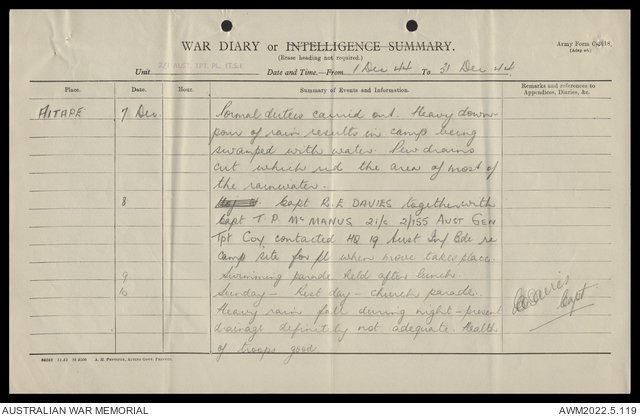 WAR DIARY or INTELLIGENCE SUMMARY.
(Erase heading not required.)
Army Form C.2118.
Unit 2/1 AUST. TPT. PL. (T.S.)
Date and Time—From 1 Dec 44 To 31 Dec 44
Place. Date. Hour. Summary of Events and Information. Remarks and references to Appendices, Diaries, &c.
AITAPE 7 Dec. Normal duties carried out. Heavy down-
pour of rain results in camp being
swamped with water. New drains
cut which rid the area of most of
the rainwater.
8 Capt R.E DAVIES together with
Capt T.P. McMANUS 2i/c 2/155 AUST GEN
Tpt Coy contacted HQ 19 Aust Inf Bde re
camp site for pl when move takes place.
9 Swimming parade held after lunch.
10 Sunday — Rest day — church parade.
Heavy rain fall during night — present
drainage definitely not adequate. Health
of troops good
Capt
AUSTRALIAN WAR MEMORIAL
AWM2022.5.119